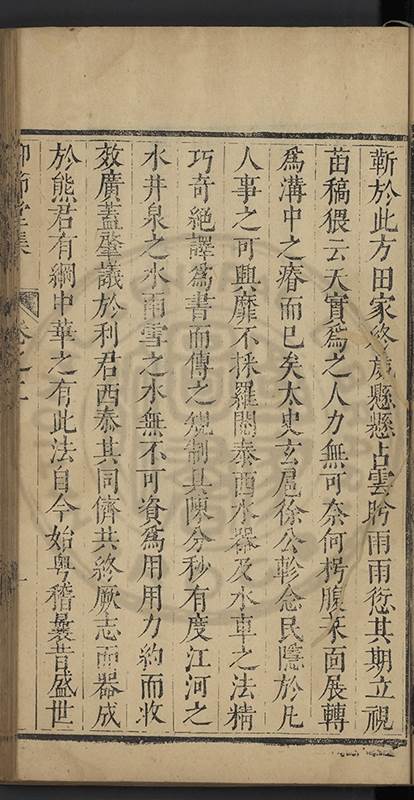 靳於此方田家終歲懸懸占雲盻雨雨愆其期立視
苗稿猥云天實爲之人力無可奈何枵腹菜面展轉
爲溝中之瘠而已矣太史玄扈徐公軫念民隱於凡
人事之可興靡不採羅閱泰西水器及水車之法精
巧奇絕譯爲書而傳之規制具陳分秒有度江河之
水井泉之水雨雪之水無不可資爲用用力約而收
效廣蓋肇議於利君西泰其同儕共終厥志而器成
於熊君有綱中華之有此法自今始粤稽曩昔盛世
仰節堂集 卷之一